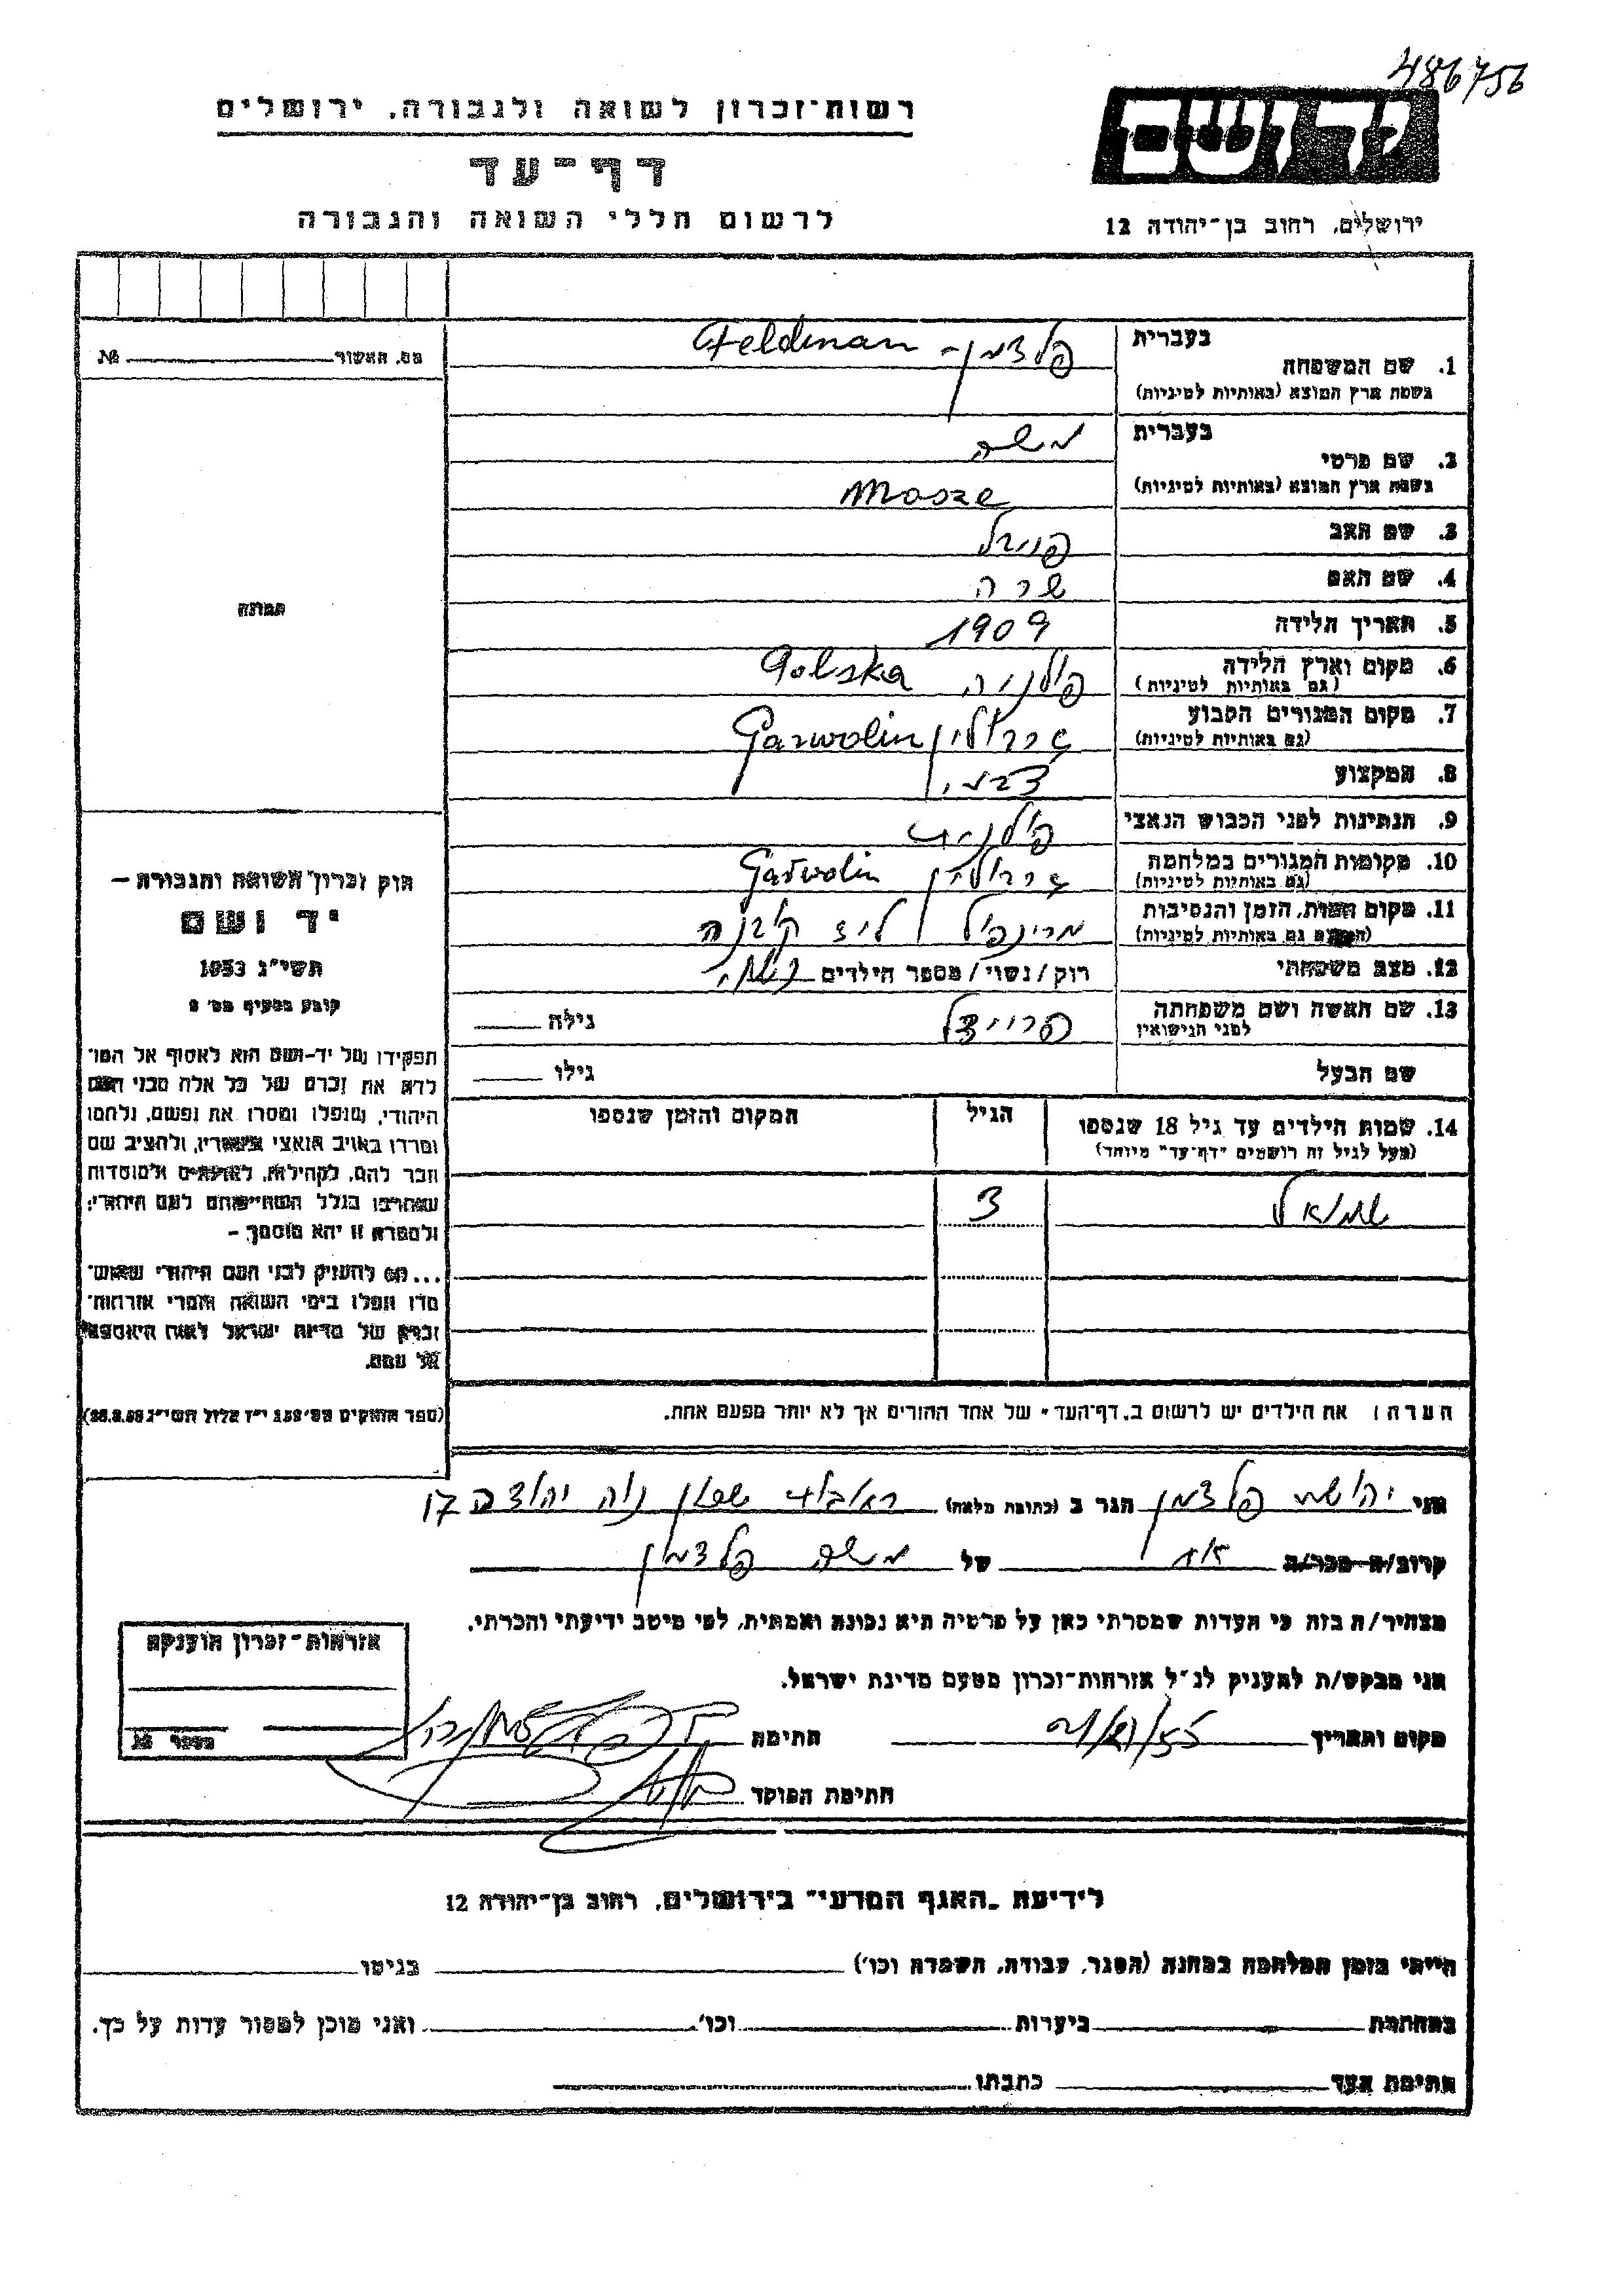 486756
רשות־זכרון לשואה ולגבורה, ירושלים
יד ושם
דף־עד
לרשום חללי השואה והגבורה
ירושלים, רחוב בן־יהודה 12
בעברית
1. שם המשפחה פלדמן - Feldman
בשפת ארץ המוצא (באותיות לטיניות)
מס. האשור №
בעברית
2. שם פרטי משה
בשפת ארץ המוצא (באותיות לטיניות) Mosze
3. שם האב פויבל
4. שם האם שרה
תמונה
5. תאריך הלידה 1909
6. מקום וארץ הלידה פולניה Polska
(גם באותיות לטיניות)
7. מקום המגורים הקבוע גרוולין Garwolin
(גם באותיות לטיניות)
8. המקצוע
9. הנתינות לפני הכבוש הנאצי פולנית
10. מקומות המגורים במלחמה גרוולין Garwolin
(גם באותיות לטיניות)
11. מקום המות, הזמן והנסיבות
(המקום גם באותיות לטיניות)
12. מצב משפחתי רוק/נשוי/מספר הילדים נשוי
13. שם האשה ושם משפחתה פריידל גילה
לפני הנישואין
שם הבעל גילו
חוק זכרון השואה והגבורה —
יד ושם
תשי״ג 1953
קובע בסעיף מס׳ 2
תפקידו של יד־ושם הוא לאסוף אל המו־
לדת את זכרם של כל אלה מבני העם
היהודי, שנפלו ומסרו את נפשם, נלחמו
ומרדו באויב הנאצי ובעוזריו, ולהציב שם
וזכר להם, לקהילות, לארגונים ולמוסדות
שנחרבו בגלל השתייכותם לעם היהודי;
ולמטרה זו יהא מוסמך —
...(6) להעניק לבני העם היהודי שהוש־
מדו ונפלו בימי השואה והמרי אזרחות־
זכרון של מדינת ישראל לאות היאספם
אל עמם.
(ספר החוקים מס׳ 132, י״ז אלול תשי״ג 28.8.53)
14. שמות הילדים עד גיל 18 שנספו הגיל המקום והזמן שנספו
(מעל לגיל זה רושמים ״דף־עד״ מיוחד)
שמואל 3
הערה: את הילדים יש לרשום ב„דף־העד״ של אחד ההורים אך לא יותר מפעם אחת.
אני יהושע פלדמן הגר ב (כתובת מלאה) שכון נוה יהודה 17
קרוב/ה מכר/ה אח של משה פלדמן
מצהיר/ה בזה כי העדות שמסרתי כאן על פרטיה היא נכונה ואמתית, לפי מיטב ידיעתי והכרתי.
אני מבקש/ת להעניק לנ״ל אזרחות־זכרון מטעם מדינת ישראל.
מקום ותאריך חתימה
חתימת הפוקד
אזרחות־זכרון הוענקה
מספר №
לידיעת „האגף המדעי״ בירושלים, רחוב בן־יהודה 12
הייתי בזמן המלחמה במחנה (הסגר, עבודה, השמדה וכו׳) בגיטו
במחתרת ביערות וכו׳ ואני מוכן למסור עדות על כך.
חתימת העד כתבתו